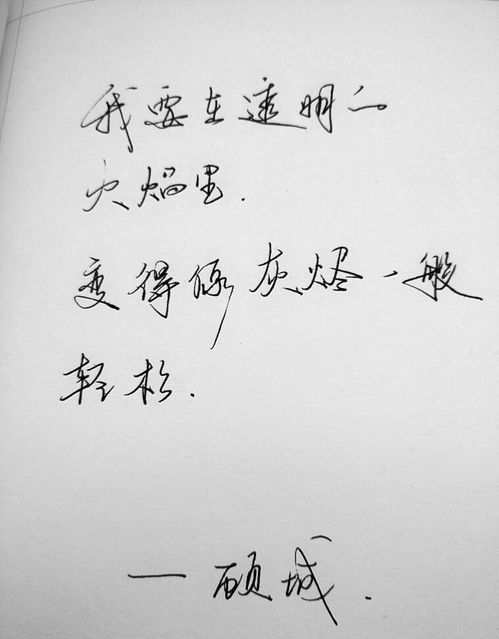 我要在透明的
火焰里.
变得像灰烬一般
轻松.
—顾城.